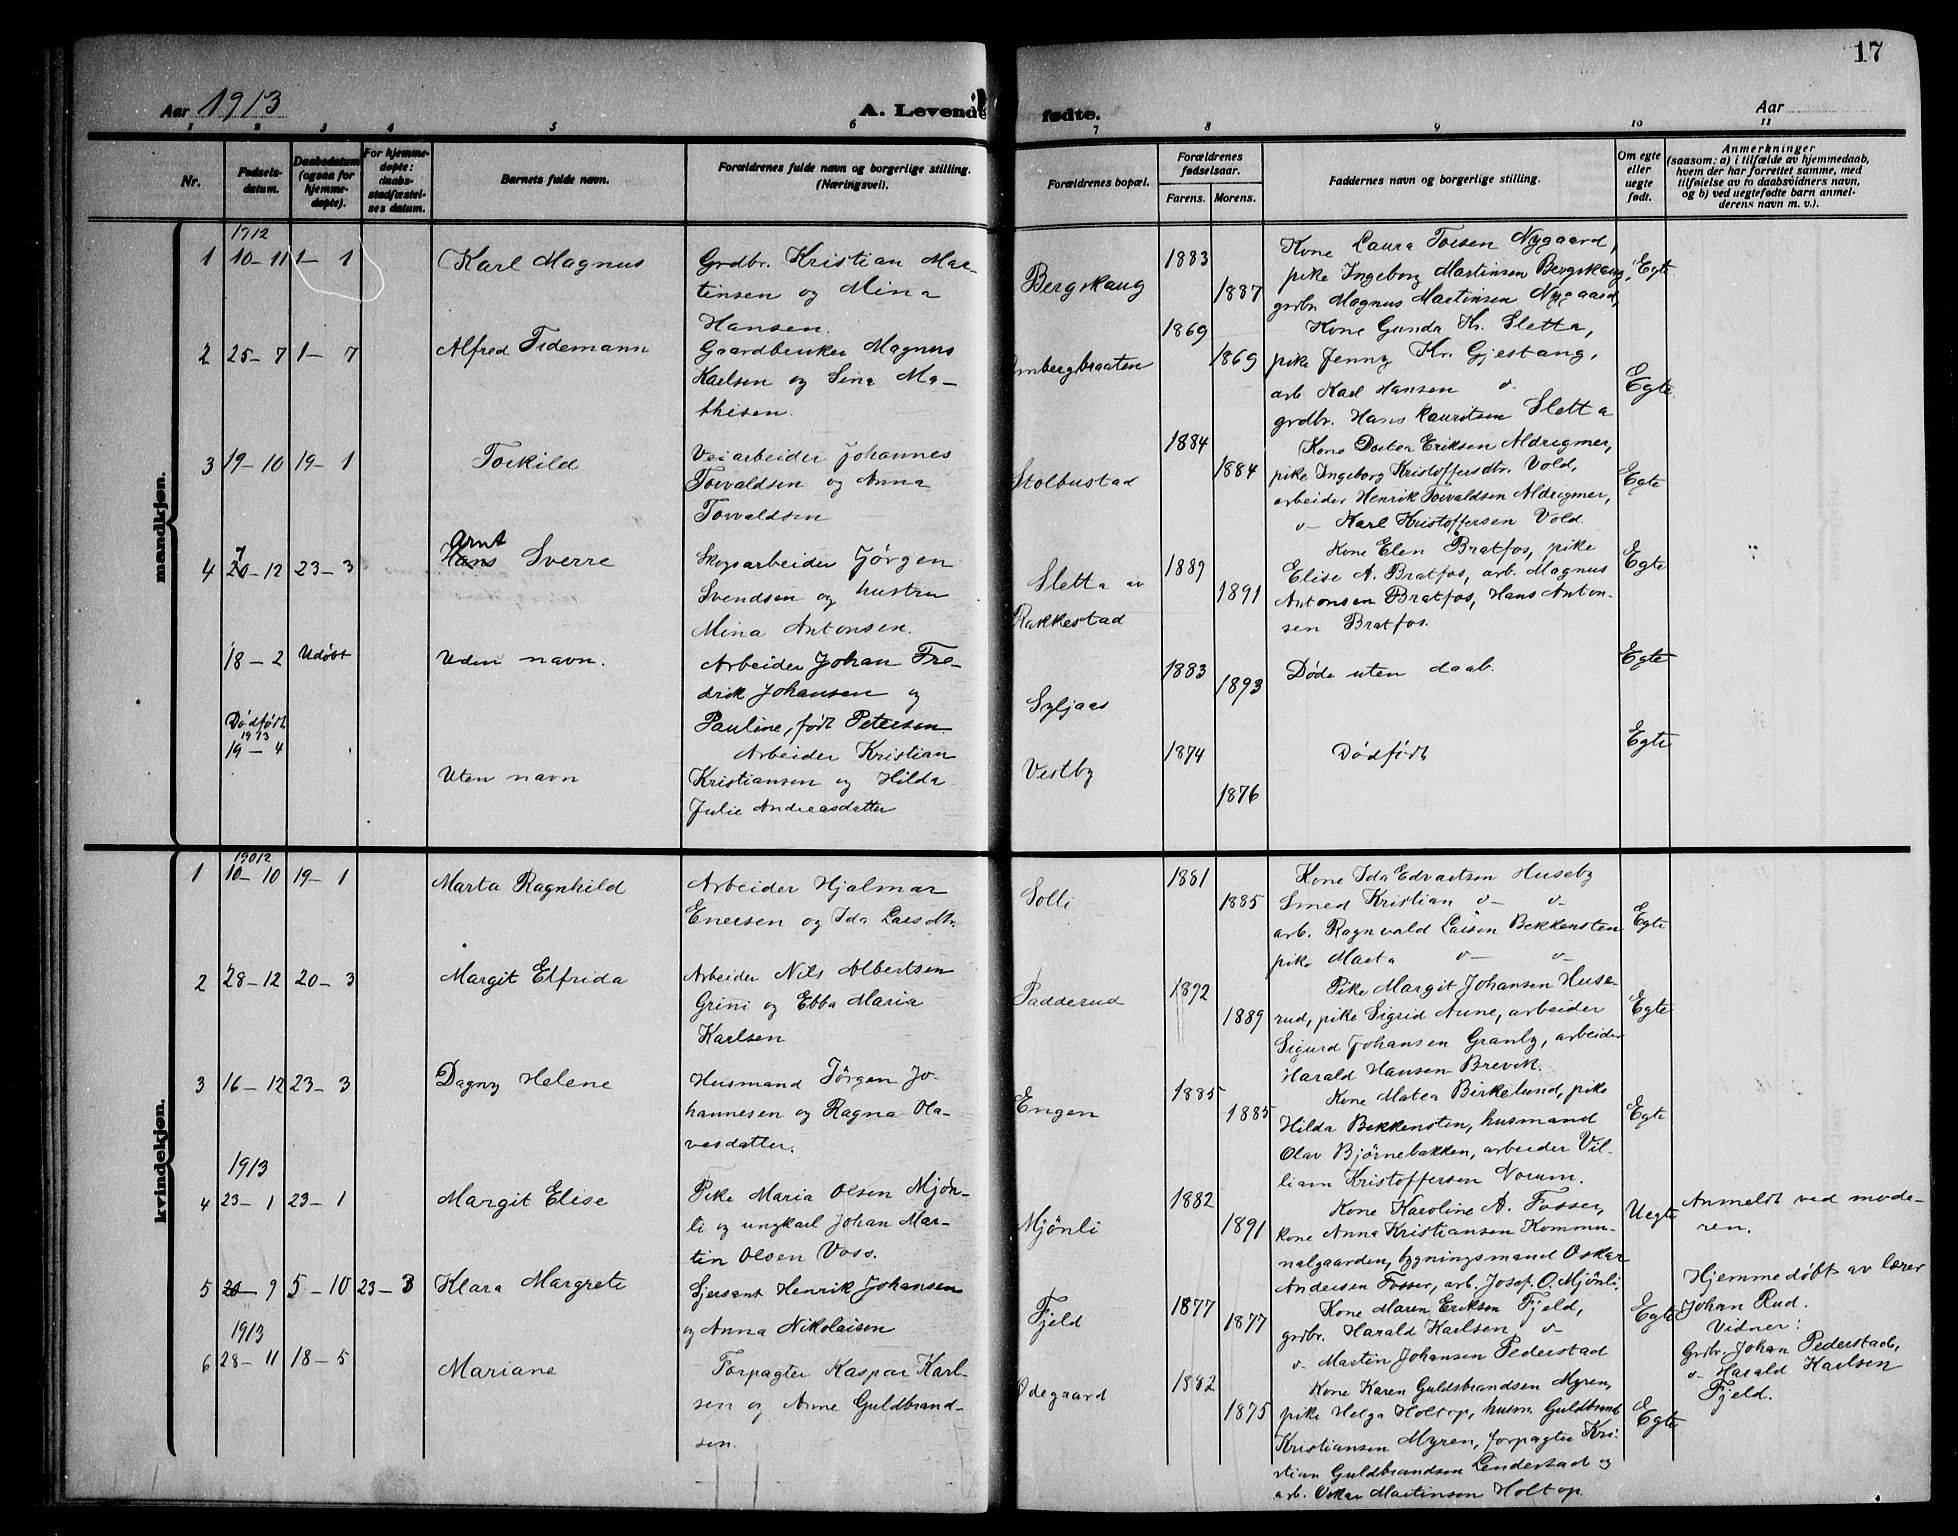 17
Aar 1913
A. Levende fødte.
Aar
1 2 3 4 5 6 7 8 9 10 11
Nr.
Fødsels-
datum.
Daabsdatum
(ogsaa for
hjemme-
døpte).
For hjemme-
døpte:
daabs-
stadfæstel-
ses datum.
Barnets fulde navn.
Forældrenes fulde navn og borgerlige stilling.
(Næringsvei).
Forældrenes bopæl.
Forældrenes
fødselsaar.
Farens. Morens.
Faddernes navn og borgerlige stilling.
Om egte
eller
uegte
født.
Anmerkninger
(saasom: a) i tilfælde av hjemmedaab,
hvem der har forrettet samme, med
tilføielse av to daabsvidners navn,
og b) ved uegtefødte barn anmel-
derens navn m. v.).
mandkjøn.
1912
1 10-11 1-1 Karl Magnus
Grdbr. Kristian Mar-
tinsen og Mina
Hansen.
Bergskaug
1883
1887
Kone Laura Torsen Nygaard,
pike Ingeborg Martinsen Bergskaug,
grdbr. Magnus Martinsen Nygaard,
Egte
2 25-7 1-7 Alfred Tidemann
Gaardbruker Magnus
Karlsen og Lina Ma-
thisen.
mbergbraaten
1869
1869
Kone Gunda Kr. Sletta,
pike Jenny Kr. Gjestang,
arb. Karl Hansen o-
grdbr. Hans Lauritsen Sletta
Egte
3 19-10 19-1 Torkild
Veiarbeider Johannes
Torvaldsen og Anna
Torvaldsen
Stolbustad
1884
1884
Kone Dortea Eriksen Aldrigmer,
pike Ingeborg Kristoffersdtr. Vold,
arbeider Henrik Torvaldsen Aldrigmer,
o- Karl Kristoffersen Vold.
Egte
Arnt
7
4 20-12 23-3 Hans Sverre
Skogsarbeider Jørgen
Svendsen og hustru
Mina Antonsen.
Sletta av
Rakkestad
1889
1891
Kone Elen Bratfos, pike
Elise A. Bratfos, arb. Magnus
Antonsen Bratfos, Hans Anton-
sen Bratfos.
Egte
18-2 Udøbt Uden navn.
Arbeider Johan Fre-
drik Johansen og
Pauline, født Petersen
Syljaas
1883
1893
Døde uten daab.
Egte
Dødfødt
1913
19-4
Uten navn
Arbeider Kristian
Kristiansen og Hilda
Julie Andreasdatter
Vestby
1874
1876
Dødfødt
Egte
kvindekjøn.
19012
1 10-10 19-1 Marta Ragnhild
Arbeider Hjalmar
Enersen og Ida Larsdtr.
Solli
1881
1885
Kone Ida Edvartsen Huseby
Smed Kristian o- o-
arb. Ragnvald Larsen Bekkensten
pike Marta o- o-
Egte
2 28-12 20-3 Margit Elfrida
Arbeider Nils Albertsen
Grini og Ebba Maria
Karlsen
Padderud
1892
1889
Pike Margit Johansen Huse-
rud, pike Sigrid Aune, arbeider
Sigurd Johansen Granly, arbeider
Harald Hansen Brevik.
Egte
3 16-12 23-3 Dagny Helene
Husmand Jørgen Jo-
hannesen og Ragna Ola-
vesdatter.
Engen
1885
1885
Kone Matea Birkelund, pike
Hilda Bekkensten, husmand
Olav Bjørnebakken, arbeider Vil-
liam Kristoffersen Norum.
Egte
1913
4 23-1 23-1 Margit Elise
Pike Maria Olsen Mjøn-
li og ungkarl Johan Mar-
tin Olsen Voss.
Mjönli
1882
1891
Kone Karoline A. Fosser,
kone Anna Kristiansen Kommu-
nalgaarden, bygningsmand Oskar
Andersen Fosser, arb. Josef O. Mjönli.
Uegte
Anmeldt ved mode-
ren.
5 20-9 5-10 23-3 Klara Margrete
Sjersant Henrik Johansen
og Anna Nikolaisen
Fjeld
1877
1877
Kone Maren Eriksen Fjeld,
grdbr. Harald Karlsen o-
o- Martin Johansen Pederstad
Egte
Hjemmedøbt av lærer
Johan Rud.
Vidner:
Grdbr. Johan Pederstad,
o- Harald Karlsen
Fjeld.
1913
6 28-11 18-5 Mariane
Forpagter Kaspar Karl-
sen og Anne Guldbrand-
sen.
Ødegaard
1882
1875
Kone Karen Guldsbrandsen Myren,
pike Helga Holtop, husm. Guldbrand
Kristiansen Myren, forpagter Kri-
stian Guldbrandsen Lenderstad og
arb. Oskar Martinsen Holtop
Egte